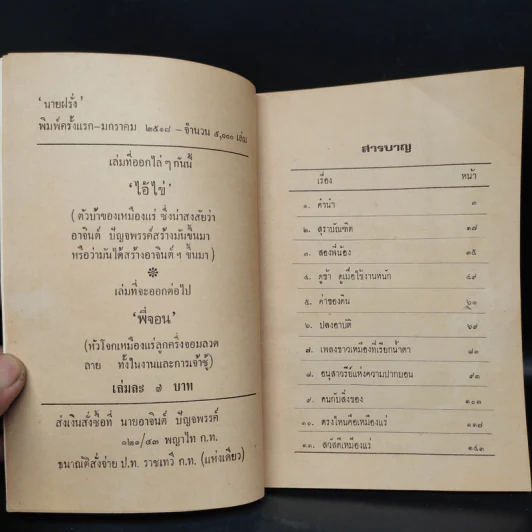 'นายฝรั่ง'
พิมพ์ครั้งแรก-มกราคม ๒๕๑๘ - จำนวน ๕,๐๐๐ เล่ม
เล่มที่ออกไล่ ๆ กันนี้
'ไอ้ไข่'
(ตัวบ้าของเหมืองแร่ ซึ่งน่าสงสัยว่า
อาจินต์ ปัญจพรรค์สร้างมันขึ้นมา
หรือว่ามันได้สร้างอาจินต์ ฯ ขึ้นมา)
เล่มที่จะออกต่อไป
'พี่จอน'
(หัวโจกเหมืองแร่ลูกครึ่งจอมลวด
ลาย ทั้งในงานและการเจ้าชู้)
เล่มละ ๗ บาท
ส่งเงินสั่งซื้อที่ นายอาจินต์ ปัญจพรรค์
๑๒๑/๔๓ พญาไท ก.ท.
ธนาณัติสั่งจ่าย ป.ท. ราชเทวี ก.ท. (แห่งเดียว)
สารบาญ
เรื่อง หน้า
๑. คำนำ ๓
๒. สุราบัณฑิต ๑๗
๓. สองพี่น้อง ๓๕
๔. ดูช้า ดูเมื่อใช้งานหนัก ๔๙
๕. ค่าของคน ๖๑
๖. ปลงอาบัติ ๖๙
๗. เพลงชาวเหมืองที่เรียกน้ำตา ๘๓
๘. อนุสาวรีย์แห่งความปากบอน ๙๓
๙. คนกับสิ่งของ ๑๐๓
๑๐. ตรงไหนคือเหมืองแร่ ๑๑๗
๑๑. สวัสดีเหมืองแร่ ๑๔๓